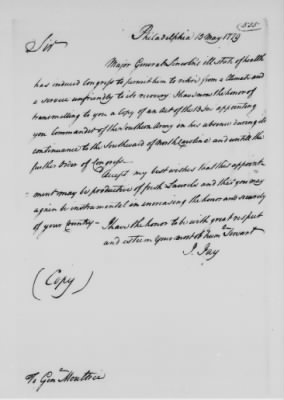 535
Philadelphia 13 May 1779
Sir
Major General Lincoln's ill state of health
has induced Congress to permit him to retire from a Climate and
a service unfriendly to its recovery. I have now the honor of
transmelling to you a Copy of an act of the appointing
you Commander of the Southern Army on his absence during its
continuance to the Southward of North Carolina and untill the
further Order of Congress.
Accept my best wishes that this appoint-
ment may be productive of fresh Laurels and that you may
again be instrumental in encreasing the honor and security
of your Country- I have the honor to be with great respect
and esteem Your most Ob. Hum. Servant
J. Jay
(Copy)
To Genl Moultrie